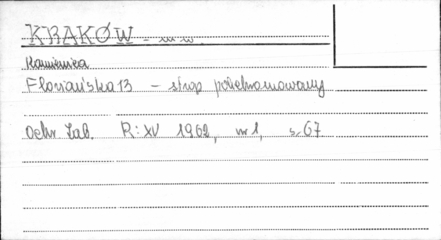 KRAKÓW - m w.
Kamienica
Floriańska 13 - strop polichromowany
Ochr. Zab. R: XV 1962, nr 1, s. 67